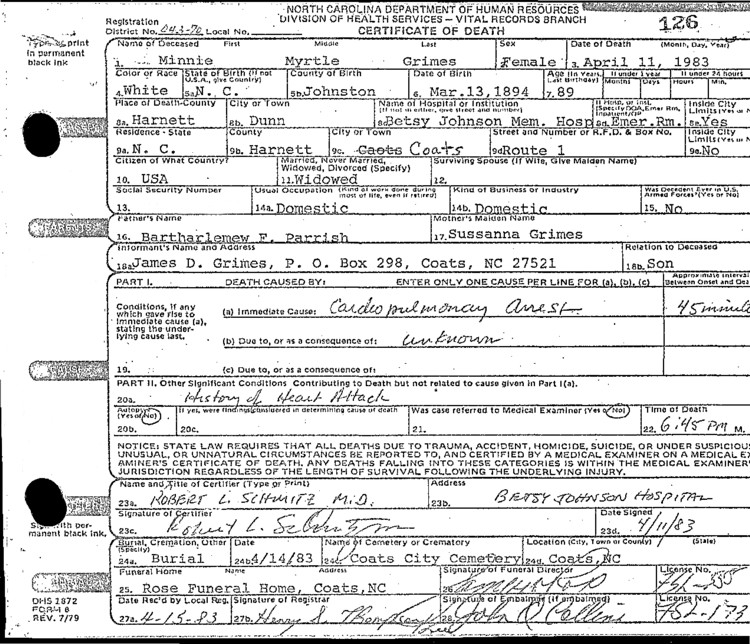 NORTH CAROLINA DEPARTMENT OF HUMAN RESOURCES
DIVISION OF HEALTH SERVICES - VITAL RECORDS BRANCH
CERTIFICATE OF DEATH
126
Registration
District No. 043-70 Local No.
Type or print
in permanent
black ink
Name of Deceased First Middle Last Sex Date of Death (Month, Day, Year)
1. Minnie Myrtle Grimes 2. Female 3. April 11, 1983
Color or Race State of Birth (If not U.S.A., give Country) County of Birth Date of Birth Age (In Years, Last Birthday) If under 1 year If under 24 hours
Months Days Hours Min.
4. White 5a. N. C. 5b. Johnston 6. Mar. 13, 1894 7. 89
Place of Death-County City or Town Name of Hospital or Institution (If not in either, give street and number) If Hosp. or Inst. (Specify DOA, Emer Rm, Inpatient/OP Inside City Limits (Yes or N
8a. Harnett 8b. Dunn 8c Betsy Johnson Mem. Hosp 8d Emer. Rm. 8e. Yes
Residence - State County City or Town Street and Number or R.F.D. & Box No. Inside City Limits (Yes or N
9a. N. C. 9b. Harnett 9c. Caots Coats 9d Route 1 9e. No
Citizen of What Country? Married, Never Married, Widowed, Divorced (Specify) Surviving Spouse (If Wife, Give Maiden Name)
10. USA 11. Widowed 12.
Social Security Number Usual Occupation (Kind of work done during most of life, even if retired) Kind of Business or Industry Was Decedent Ever in U.S. Armed Forces? (Yes or No)
13. 14a. Domestic 14b. Domestic 15. No
Father's Name Mother's Maiden Name
16. Bartharlemew F. Parrish 17. Sussanna Grimes
Informant's Name and Address Relation to Deceased
18a. James D. Grimes, P. O. Box 298, Coats, NC 27521 18b. Son
PART I. DEATH CAUSED BY: ENTER ONLY ONE CAUSE PER LINE FOR (a), (b), (c) Approximate Interval Between Onset and Dea
Conditions, if any
which gave rise to
immediate cause (a),
stating the under-
lying cause last.
(a) Immediate Cause: Cardiopulmonary Arrest 45 minute
(b) Due to, or as a consequence of: unknown
19. (c) Due to, or as a consequence of:
PART II. Other Significant Conditions Contributing to Death but not related to cause given in Part I(a).
20a. History of Heart Attack
Autopsy (Yes or No) If yes, were findings considered in determining cause of death Was case referred to Medical Examiner (Yes or No) Time of Death
20b. 20c. 21. 22. 6:45 PM M.
NOTICE: STATE LAW REQUIRES THAT ALL DEATHS DUE TO TRAUMA, ACCIDENT, HOMICIDE, SUICIDE, OR UNDER SUSPICIOUS
UNUSUAL, OR UNNATURAL CIRCUMSTANCES BE REPORTED TO, AND CERTIFIED BY A MEDICAL EXAMINER ON A MEDICAL EX
AMINER'S CERTIFICATE OF DEATH. ANY DEATHS FALLING INTO THESE CATEGORIES IS WITHIN THE MEDICAL EXAMINER
JURISDICTION REGARDLESS OF THE LENGTH OF SURVIVAL FOLLOWING THE UNDERLYING INJURY.
Name and Title of Certifier (Type or Print) Address
23a. ROBERT L. SCHMITZ M.D. 23b. BETSY JOHNSON HOSPITAL
Signature of Certifier Date Signed
23c. Robert L. Schmitz 23d. 4/11/83
Sign with per-
manent black ink.
Burial, Cremation, Other (Specify) Date Name of Cemetery or Crematory Location (City, Town or County) (State)
24a. Burial 24b. 4/14/83 24c. Coats City Cemetery 24d. Coats, NC
Funeral Home Name Address Signature of Funeral Director License No.
25. Rose Funeral Home, Coats, NC 26.
DHS 1872
FORM 8
REV. 7/79
Date Rec'd by Local Reg. Signature of Registrar Signature of Embalmer (If embalmed) License No.
27a. 4-15-83 27b. Henry S. Thompson 28. John Q Collins